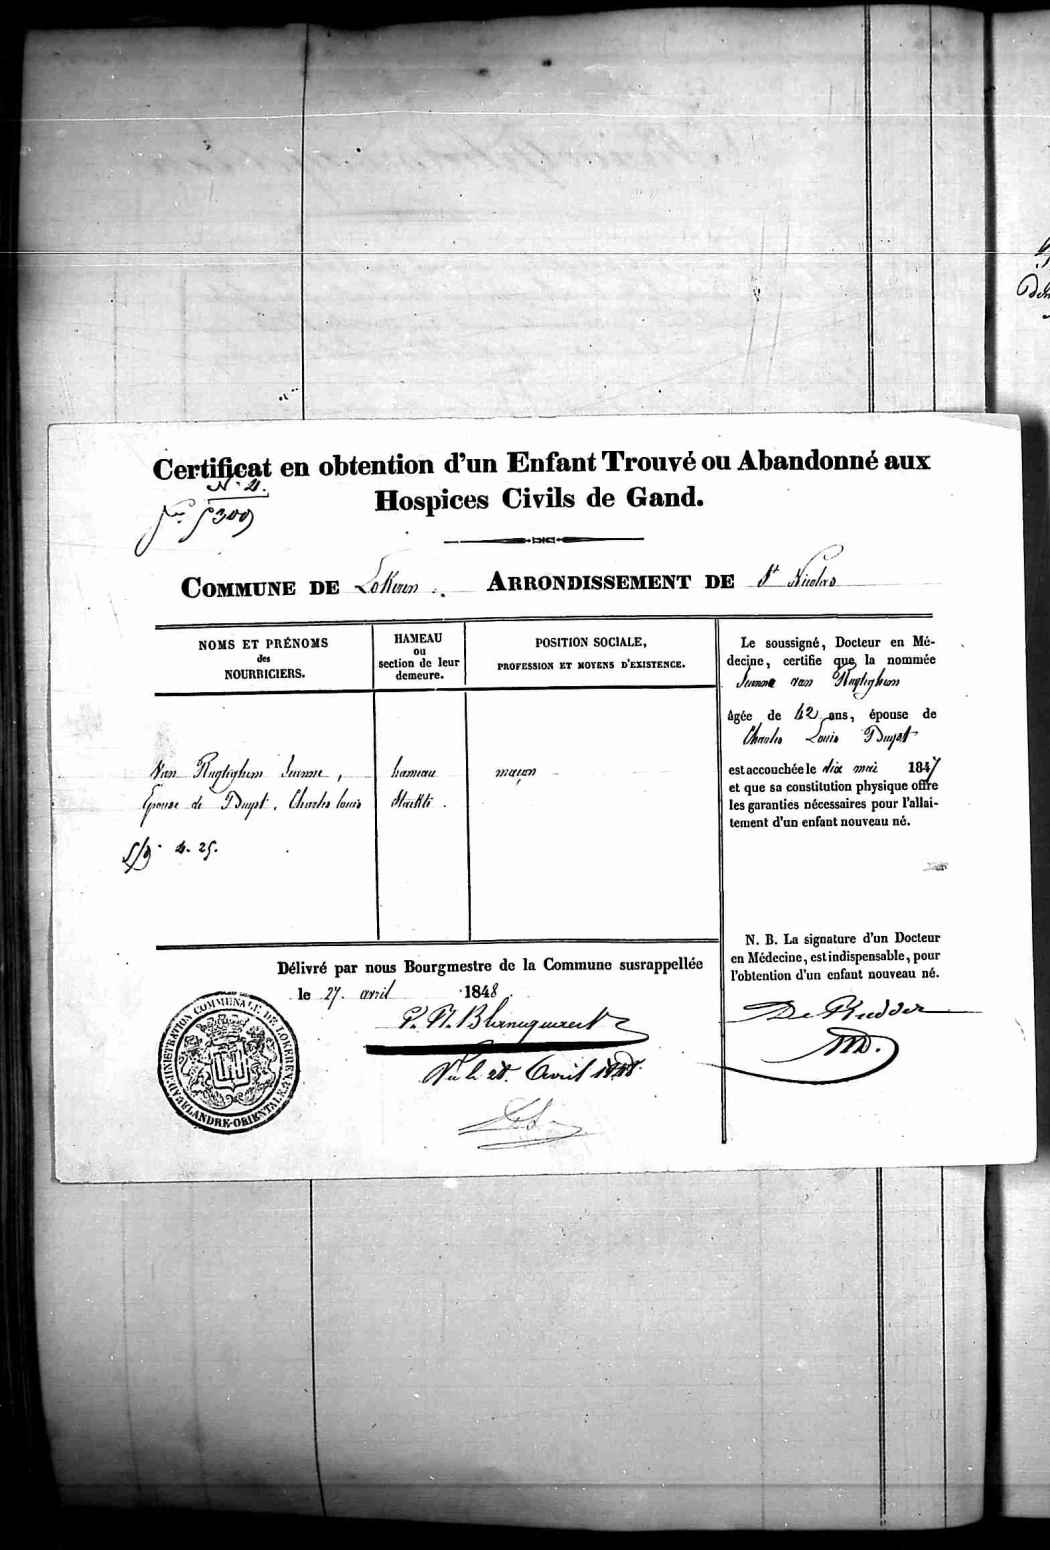 Certificat en obtention d'un Enfant Trouvé ou Abandonné aux
Hospices Civils de Gand.
N° 4.
COMMUNE DE Lokeren. ARRONDISSEMENT DE St Nicolas
NOMS ET PRÉNOMS
des
NOURRICIERS.
HAMEAU
ou
section de leur
demeure.
POSITION SOCIALE,
PROFESSION ET MOYENS D'EXISTENCE.
Van Jeanne,
Epouse de Charles Louis
hameau
maçon
Le soussigné, Docteur en Mé-
decine, certifie que la nommée
Jeanne van
âgée de 42 ans, épouse de
Charles Louis
est accouchée le dix mai 1847
et que sa constitution physique offre
les garanties nécessaires pour l'allai-
tement d'un enfant nouveau né.
N. B. La signature d'un Docteur
en Médecine, est indispensable, pour
l'obtention d'un enfant nouveau né.
De Rudder
MD.
Délivré par nous Bourgmestre de la Commune susrappellée
le 27. avril 1848.
Vu le 28. Avril 1848.
ADMINISTRATION COMMUNALE DE LOKEREN
FLANDRE-ORIENTALE